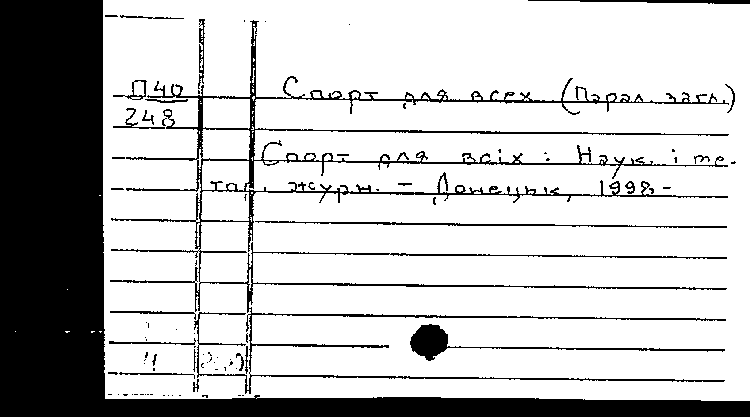 П40
248
Спорт для всех (Парал. загл.)
Спорт для всіх : Наук. і те-
хн. журн. – Донецьк, 1998-
4